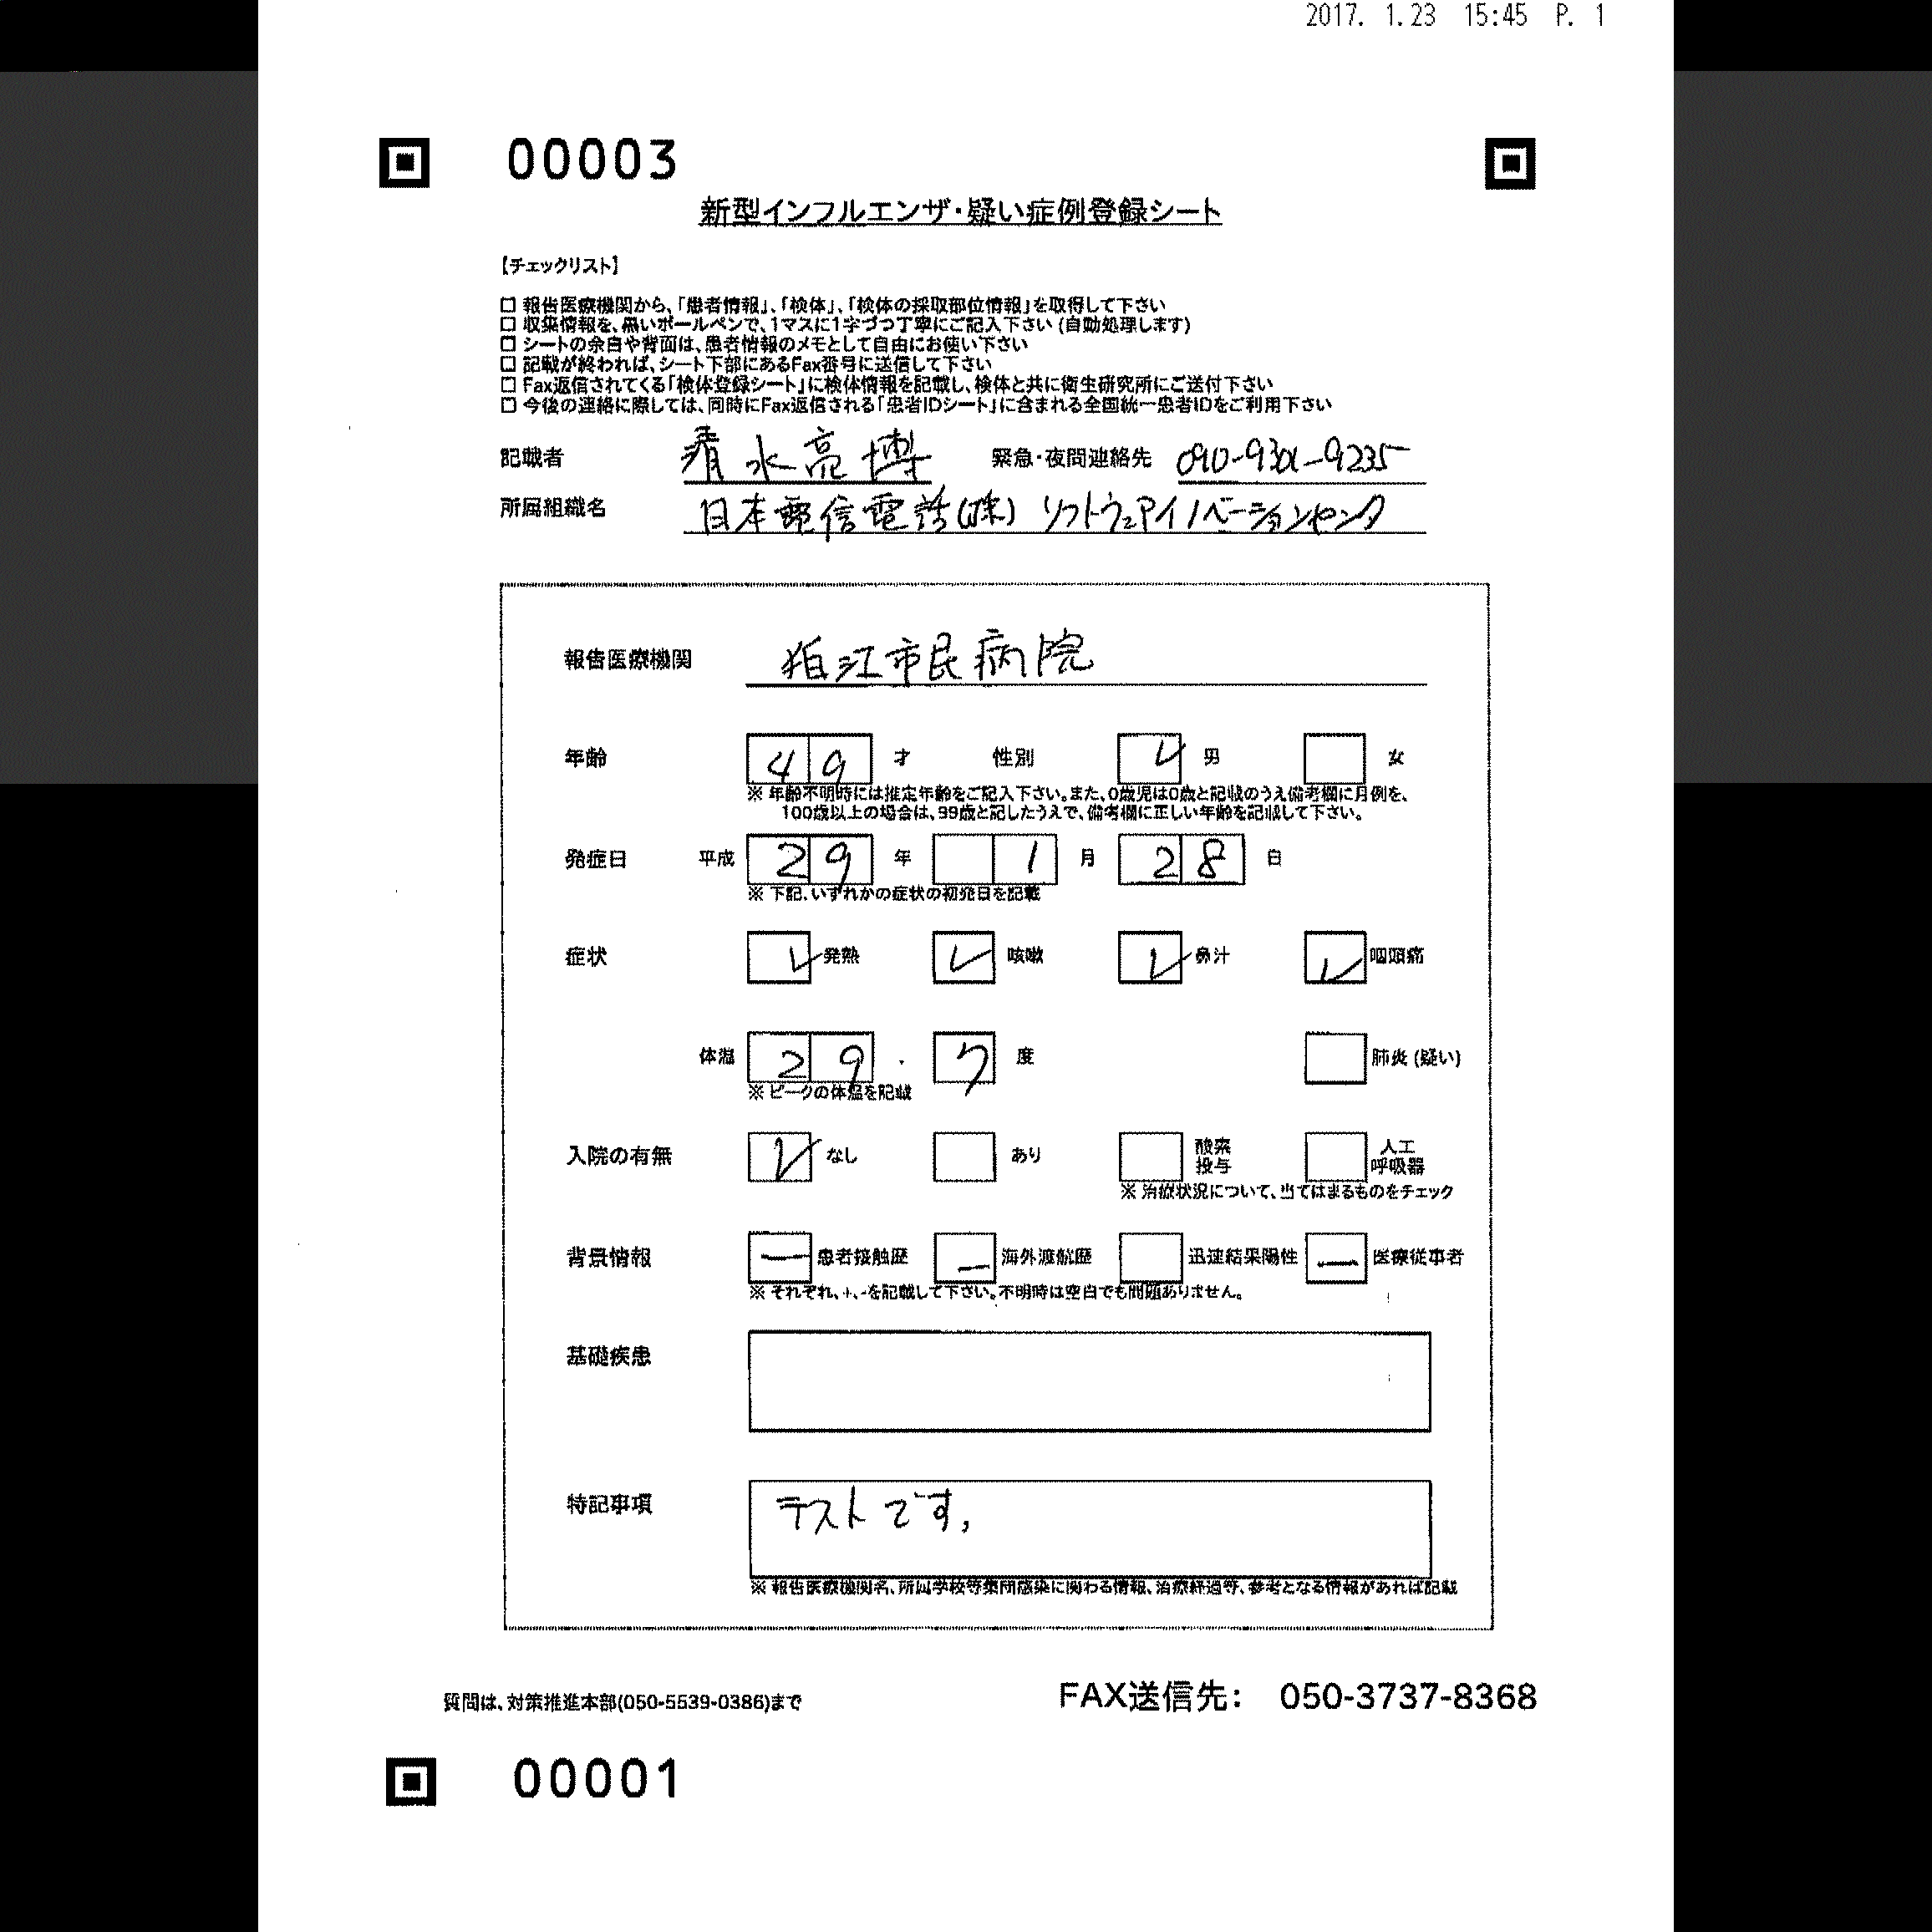 2017. 1.23 15:45 P. 1
00003
新型インフルエンザ・疑い症例登録シート
【チェックリスト】
□ 報告医療機関から、「患者情報」、「検体」、「検体の採取部位情報」を取得して下さい
□ 収集情報を、黒いボールペンで、1マスに1字づつ丁寧にご記入下さい (自動処理します)
□ シートの余白や背面は、患者情報のメモとして自由にお使い下さい
□ 記載が終われば、シート下部にあるFax番号に送信して下さい
□ Fax返信されてくる「検体登録シート」に検体情報を記載し、検体と共に衛生研究所にご送付下さい
□ 今後の連絡に際しては、同時にFax返信される「患者IDシート」に含まれる全国統一患者IDをご利用下さい
記載者 清水亮博 緊急・夜間連絡先
所属組織名 日本電信電話(株) ソフトウェアイノベーションセンタ
報告医療機関 狛江市民病院
年齢 49 才 性別 レ 男 女
※ 年齢不明時には推定年齢をご記入下さい。また、0歳児は0歳と記載のうえ備考欄に月例を、
100歳以上の場合は、99歳と記したうえで、備考欄に正しい年齢を記載して下さい。
発症日 平成 29 年 1 月 28 日
※ 下記、いずれかの症状の初発日を記載
症状 レ 発熱 レ 咳嗽 レ 鼻汁 レ 咽頭痛
体温 29 . 7 度 肺炎 (疑い)
※ ピークの体温を記載
入院の有無 レ なし あり 酸素投与 人工呼吸器
※ 治療状況について、当てはまるものをチェック
背景情報 - 患者接触歴 - 海外渡航歴 迅速結果陽性 - 医療従事者
※ それぞれ、+、-を記載して下さい。不明時は空白でも問題ありません。
基礎疾患
特記事項 テストです。
※ 報告医療機関名、所属学校等集団感染に関わる情報、治療経過等、参考となる情報があれば記載
質問は、対策推進本部(050-5539-0386)まで FAX送信先: 050-3737-8368
00001